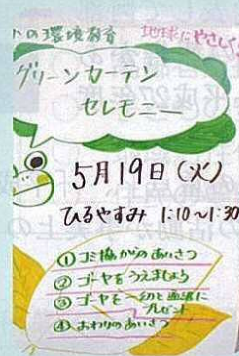 トの環境教育 地球にやさしく
グリーンカーテン
セレモニー
5月19日(火)
ひるやすみ 1:10～1:30
① ゴミ協からのあいさつ
② ゴーヤをうえましょう
③ ゴーヤを一切と函館に
プレゼント
④ おわりのあいさつ